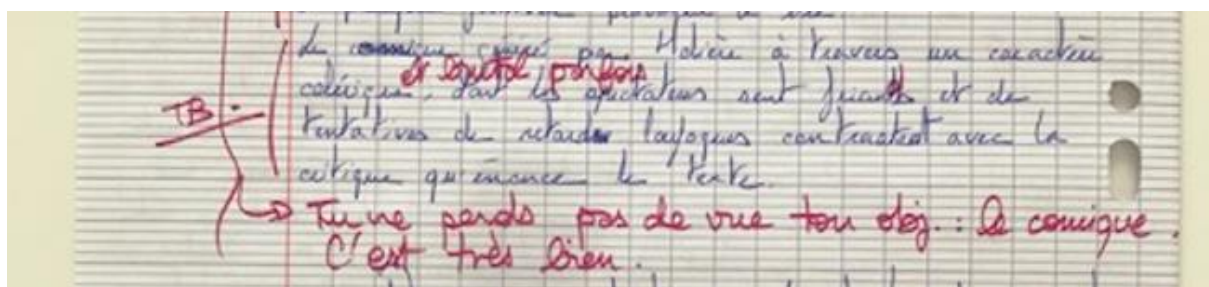 Le comique créé par Molière à travers un caractère
et brutal parfois
colérique, dont les spectateurs sont friands et de
TB
tentatives de retarder loufoques contrastent avec la
critique qu'énonce le texte.
Tu ne perds pas de vue ton obj. : le comique.
C'est très bien.